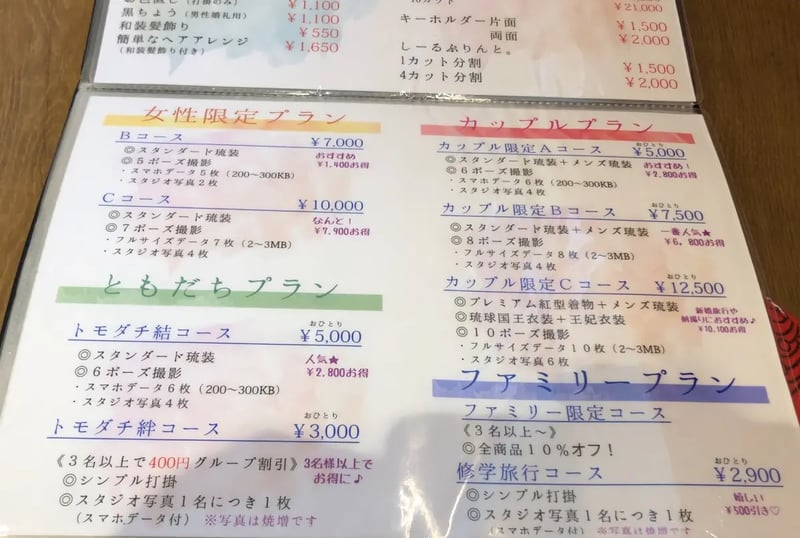 お色直し（打掛のみ） ￥1,100
黒ちょう（男性婚礼用） ￥1,100
和装髪飾り ￥550
簡単なヘアアレンジ ￥1,650
（和装髪飾り付き）
￥21,000
キーホルダー片面 ￥1,500
両面 ￥2,000
しーるぷりんと。
1カット分割 ￥1,500
4カット分割 ￥2,000
女性限定プラン
Bコース ￥7,000
◎スタンダード琉装 おすすめ
◎5ポーズ撮影 ￥1,400お得
・スマホデータ5枚（200～300KB）
・スタジオ写真2枚
Cコース ￥10,000
◎スタンダード琉装 なんと！
◎7ポーズ撮影 ￥7,900お得
・フルサイズデータ7枚（2～3MB）
・スタジオ写真4枚
ともだちプラン
おひとり
トモダチ結コース ￥5,000
◎スタンダード琉装 人気★
◎6ポーズ撮影 ￥2,800お得
・スマホデータ6枚（200～300KB）
・スタジオ写真4枚
おひとり
トモダチ絆コース ￥3,000
《3名以上で400円グループ割引》 3名様以上でお得に♪
◎シンプル打掛
◎スタジオ写真1名につき1枚
（スマホデータ付） ※写真は焼増です
カップルプラン
おひとり
カップル限定Aコース ￥5,000
◎スタンダード琉装＋メンズ琉装 おすすめ！
◎6ポーズ撮影 ￥2,800お得
・スマホデータ6枚（200～300KB）
・スタジオ写真4枚
おひとり
カップル限定Bコース ￥7,500
◎スタンダード琉装＋メンズ琉装 一番人気★
◎8ポーズ撮影 ￥6,800お得
・フルサイズデータ8枚（2～3MB）
・スタジオ写真4枚
おひとり
カップル限定Cコース ￥12,500
◎プレミアム紅型着物＋メンズ琉装 新婚旅行や
◎琉球国王衣装＋王妃衣装 前撮りにおすすめ♪
◎10ポーズ撮影 ￥10,100お得
・フルサイズデータ10枚（2～3MB）
・スタジオ写真6枚
ファミリープラン
ファミリー限定コース
《3名以上～》
◎全商品10％オフ！
おひとり
修学旅行コース ￥2,900
◎シンプル打掛 嬉しい
◎スタジオ写真1名につき1枚 ￥500引き♡
（スマホデータ付） ※写真は焼増です